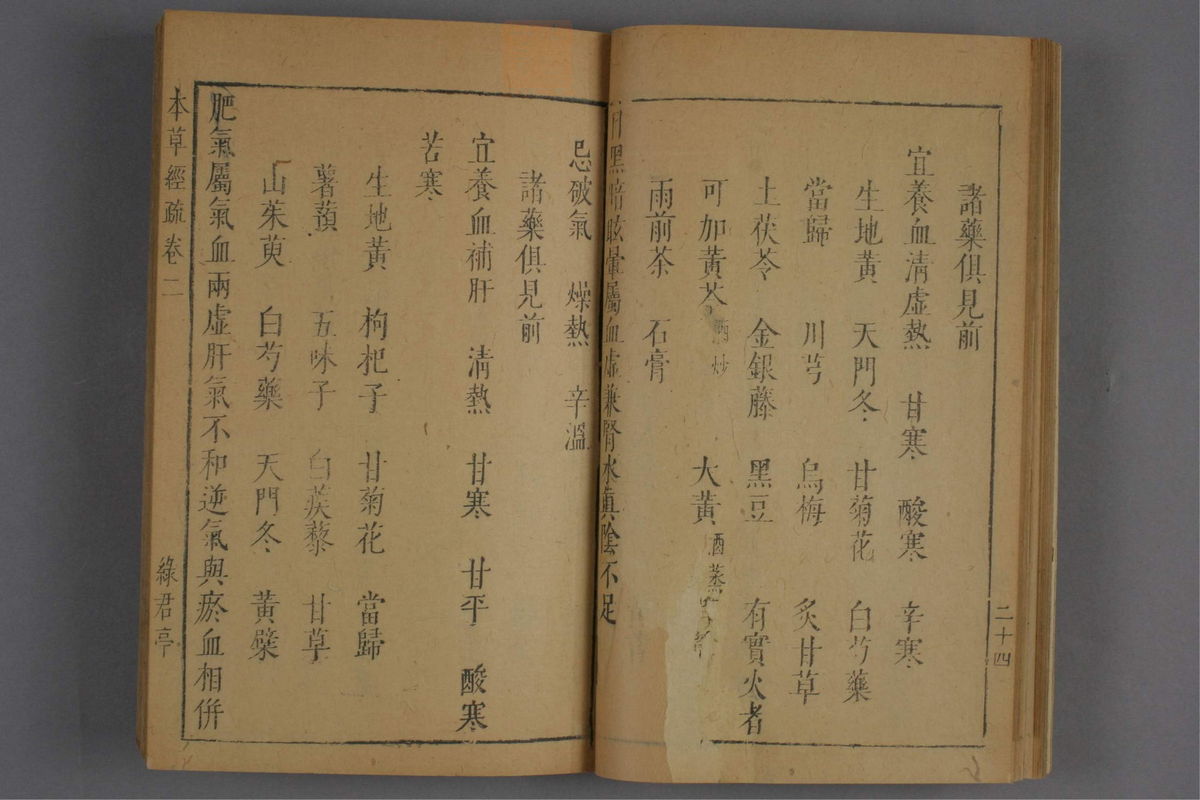 二十四
諸藥俱見前
宜養血清虛熱 甘寒 酸寒 辛寒
生地黃 天門冬 甘菊花 白芍藥
當歸 川芎 烏梅 炙甘草
土茯苓 金銀藤 黑豆 有實火者
可加黃芩酒炒 大黃酒蒸
雨前茶 石膏
目黑暗眩暈屬血虛兼腎水真陰不足
忌破氣 燥熱 辛溫
諸藥俱見前
宜養血補肝 清熱 甘寒 甘平 酸寒
苦寒
生地黃 枸杞子 甘菊花 當歸
薯蕷 五味子 白蒺藜 甘草
山茱萸 白芍藥 天門冬 黃檗
肥氣屬氣血兩虛肝氣不和逆氣與瘀血相併
本草經疏 卷二 綠君亭